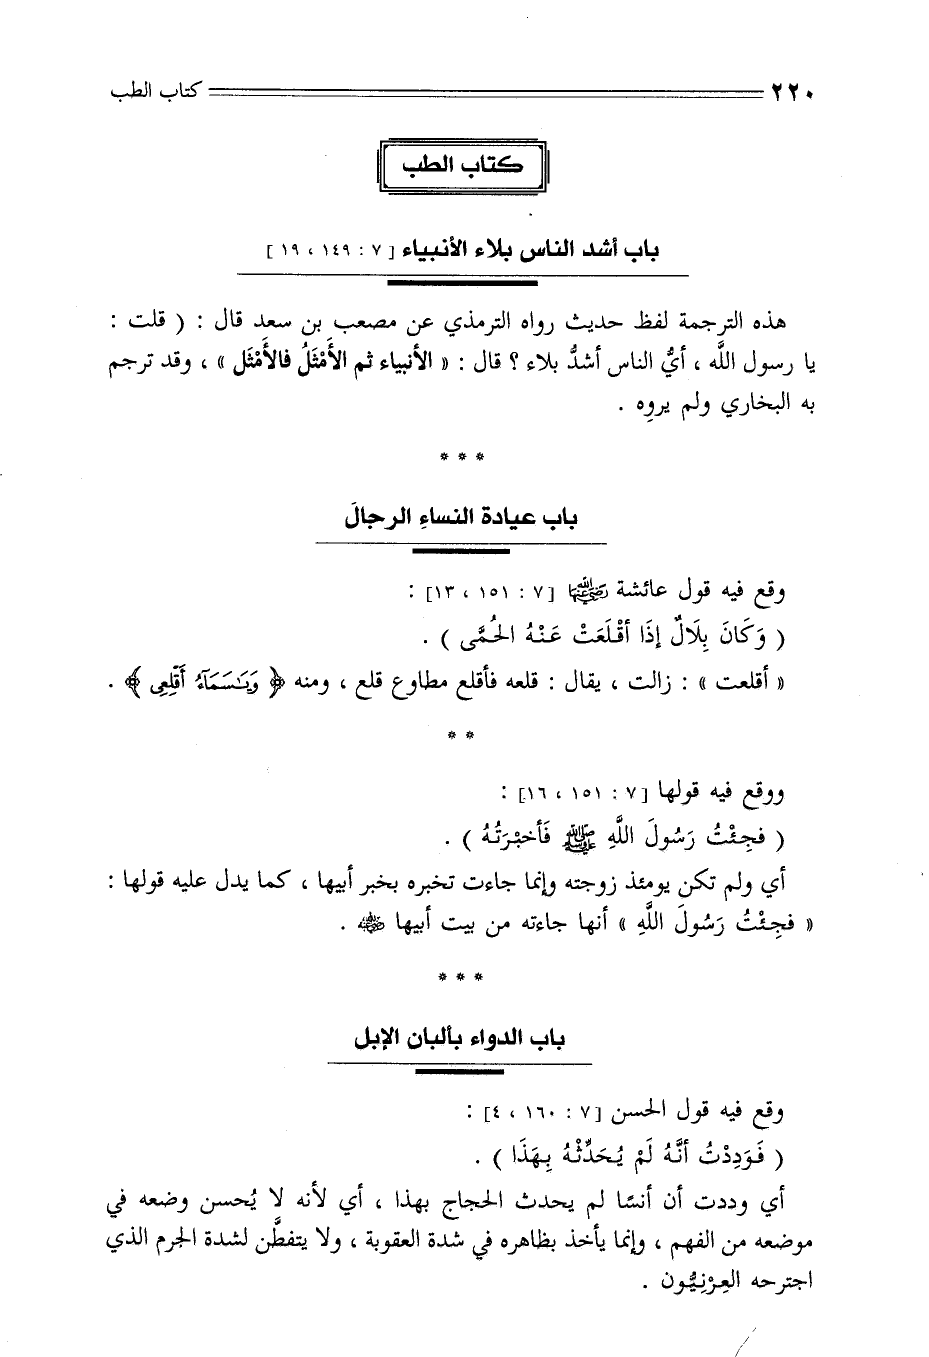 ٢٢٠ كتاب الطب
كتاب الطب
باب أشد الناس بلاء الأنبياء [ ٧ : ١٤٩ ، ١٩ ]
هذه الترجمة لفظ حديث رواه الترمذي عن مصعب بن سعد قال : ( قلت :
يا رسول اللَّه ، أيُّ الناس أشدُّ بلاء ؟ قال : « الأنبياء ثم الأَمْثَلُ فالأَمْثَل » ، وقد ترجم
به البخاري ولم يروِه .
* * *
باب عيادة النساءِ الرجالَ
وقع فيه قول عائشة رضي الله عنها [ ٧ : ١٥١ ، ١٣] :
( وَكَانَ بِلَالٌ إِذَا أقْلَعَتْ عَنْهُ الحُمَّى ) .
« أقلعت » : زالت ، يقال : قلعه فأقلع مطاوع قلع ، ومنه ﴿ وَيَٰسَمَآءُ أَقْلِعِى ﴾ .
* *
ووقع فيه قولها [ ٧ : ١٥١ ، ١٦] :
( فجِئْتُ رَسُولَ اللَّهِ ﷺ فَأخبْرَتُهُ ) .
أي ولم تكن يومئذ زوجته وإنما جاءت تخبره بخبر أبيها ، كما يدل عليه قولها :
« فجِئْتُ رَسُولَ اللَّهِ » أنها جاءته من بيت أبيها ﷺ .
* * *
باب الدواء بألبان الإبل
وقع فيه قول الحسن [ ٧ : ١٦٠ ، ٤] :
( فَوَدِدْتُ أنَّهُ لَمْ يُحَدِّثْهُ بِهَذَا ) .
أي وددت أن أنسًا لم يحدث الحجاج بهذا ، أي لأنه لا يُحسن وضعه في
موضعه من الفهم ، وإنما يأخذ بظاهره في شدة العقوبة ، ولا يتفطَّن لشدة الجرم الذي
اجترحه العِرْنِيُّون .